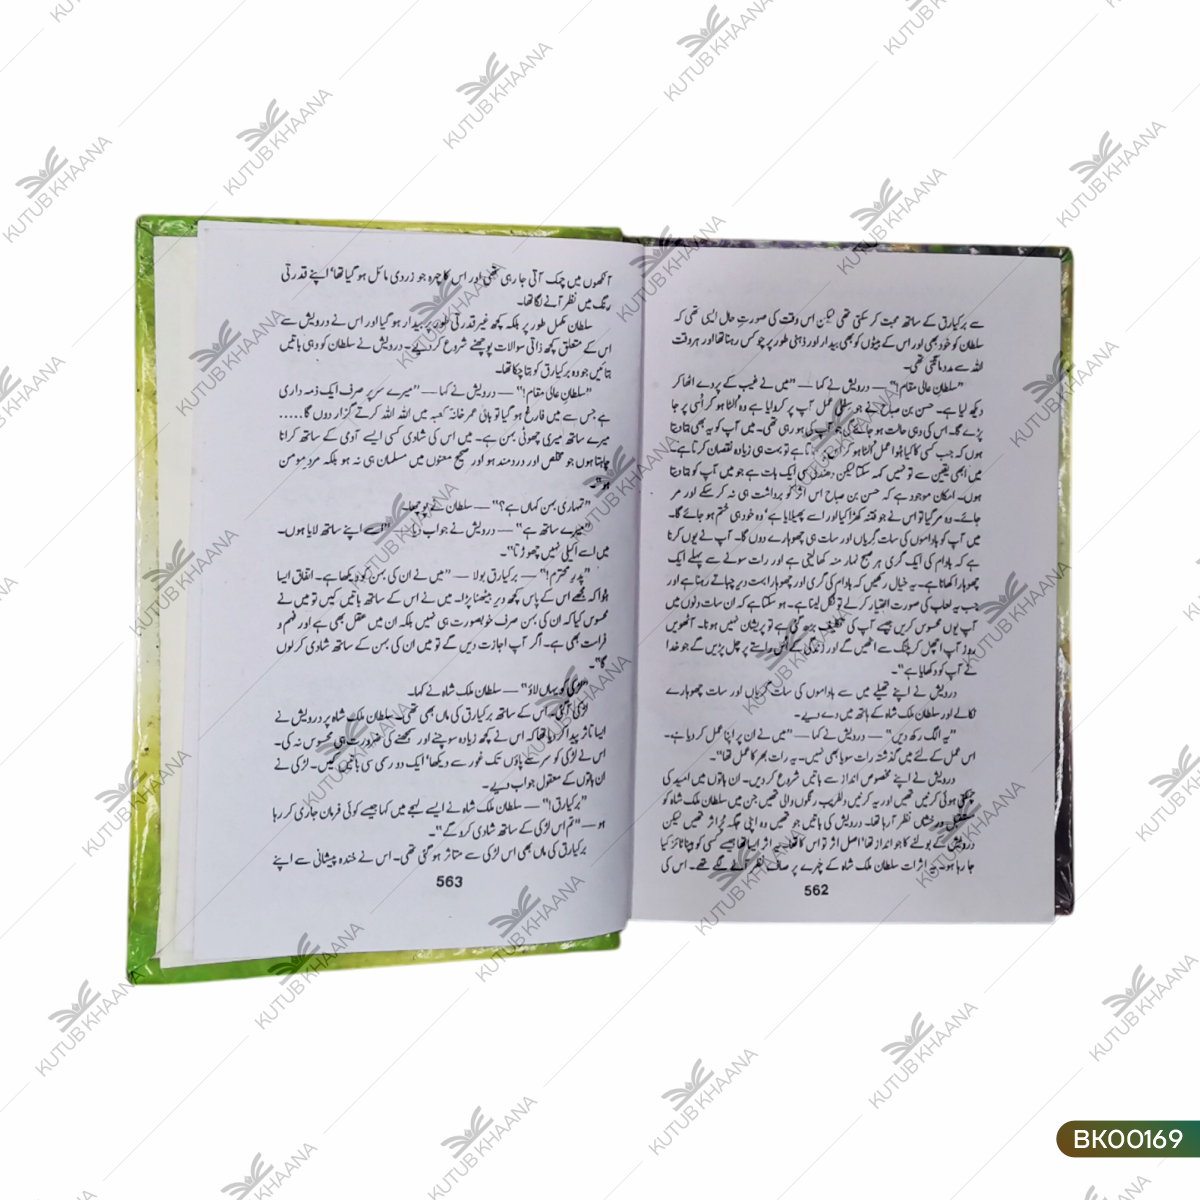 سے برکیارق کے ساتھ محبت کر سکتی تھی لیکن اس وقت کی صورتِ حال ایسی تھی کہ
سلطان کو خود بھی اور اس کے بیٹوں کو بھی بیدار اور ذہنی طور پر چوکس رہنا تھا اور ہر وقت
اللہ سے مدد مانگنی تھی۔
"سلطانِ عالی مقام!" — درویش نے کہا — "میں نے غیب کے پردے اٹھا کر
دیکھ لیا ہے۔ حسن بن صباح نے جو سفلی عمل آپ پر کروایا ہے وہ اُلٹا ہو کر اُسی پر جا
پڑے گا۔ اس کی وہی حالت ہو جائے گی جو آپ کی ہو رہی تھی۔ میں آپ کو یہ بھی بتا دیتا
ہوں کہ جب کسی کا کیا ہُوا عمل اُلٹا ہو کر اُس پر جاتا ہے تو بہت ہی زیادہ نقصان کرتا ہے۔
میں ابھی یقین سے تو نہیں کہہ سکتا لیکن دھندلی سی ایک بات ہے جو میں آپ کو بتا دیتا
ہوں۔ امکان موجود ہے کہ حسن بن صباح اس اثر کو برداشت ہی نہ کر سکے اور مر
جائے۔ وہ مر گیا تو اس نے جو فتنہ کھڑا کیا اور اسے پھیلایا ہے' وہ خود ہی ختم ہو جائے گا۔
میں آپ کو باداموں کی سات گریاں اور سات ہی چھوہارے دوں گا۔ آپ نے یوں کرنا
ہے کہ بادام کی ایک گری ہر صبح نہار منہ کھا لینی ہے اور رات سونے سے پہلے ایک
چھوہارا کھانا ہے۔ یہ خیال رکھیں کہ بادام کی گری اور چھوہارا بہت دیر چباتے رہنا ہے اور
جب یہ لعاب کی صورت اختیار کرلے تو نگل لینا ہے۔ ہو سکتا ہے کہ ان سات دنوں میں
آپ یوں محسوس کریں جیسے آپ کی تکلیف بڑھ گئی ہے تو پریشان نہیں ہونا۔ آٹھویں
روز آپ اچھل کر پلنگ سے اٹھیں گے اور زندگی کے اُس راستے پر چل پڑیں گے جو خدا
نے آپ کو دکھایا ہے"۔
درویش نے اپنے تھیلے میں سے باداموں کی سات گریاں اور سات چھوہارے
نکالے اور سلطان ملک شاہ کے ہاتھ میں دے دیئے۔
"یہ الگ رکھ دیں" — درویش نے کہا — "میں نے ان پر اپنا عمل کر دیا ہے۔
اس عمل کے لئے میں گذشتہ رات سویا بھی نہیں۔ یہ رات بھر کا عمل تھا"۔
درویش نے اپنے مخصوص انداز سے باتیں شروع کر دیں۔ ان باتوں میں امید کی
چمکتی ہوئی کرنیں تھیں اور یہ کرنیں دلفریب رنگوں والی تھیں جن میں سلطان ملک شاہ کو
مستقبل درخشاں نظر آ رہا تھا۔ درویش کی باتیں جو تھیں وہ اپنی جگہ پُراثر تھیں لیکن
درویش کے بولنے کا جو انداز تھا' اصل اثر تو اس کا تھا۔ یہ اثر ایسا تھا جیسے کسی کو ہپناٹائز کیا
جا رہا ہو۔ یہ اثرات سلطان ملک شاہ کے چہرے پر صاف نظر آنے لگے تھے۔ اس کی
562
آنکھوں میں چمک آتی جا رہی تھی اور اس کا چہرہ جو زردی مائل ہو گیا تھا' اپنے قدرتی
رنگ میں نظر آنے لگا تھا۔
سلطان مکمل طور پر بلکہ کچھ غیر قدرتی طور پر بیدار ہو گیا اور اس نے درویش سے
اس کے متعلق کچھ ذاتی سوالات پوچھنے شروع کر دیئے۔ درویش نے سلطان کو وہی باتیں
بتائیں جو وہ برکیارق کو بتا چکا تھا۔
"سلطانِ عالی مقام!" — درویش نے کہا — "میرے سر پر صرف ایک ذمہ داری
ہے جس سے میں فارغ ہو گیا تو باقی عمر خانہ کعبہ میں اللہ اللہ کرتے گزار دوں گا.....
میرے ساتھ میری چھوٹی بہن ہے۔ میں اس کی شادی کسی ایسے آدمی کے ساتھ کرانا
چاہتا ہوں جو مخلص اور دردمند ہو اور صحیح معنوں میں مسلمان ہی نہ ہو بلکہ مردِ مومن
ہو"۔
"تمہاری بہن کہاں ہے؟" — سلطان نے پوچھا۔
"میرے ساتھ ہے" — درویش نے جواب دیا — "اسے اپنے ساتھ لایا ہوں۔
میں اسے اکیلی نہیں چھوڑتا"۔
"پدرِ محترم!" — برکیارق بولا — "میں نے ان کی بہن کو دیکھا ہے۔ اتفاق ایسا
ہُوا کہ مجھے اس کے پاس کچھ دیر بیٹھنا پڑا۔ میں نے اس کے ساتھ باتیں کیں تو میں نے
محسوس کیا کہ ان کی بہن صرف خوبصورت ہی نہیں بلکہ ان میں عقل بھی ہے اور فہم و
فراست بھی ہے۔ اگر آپ اجازت دیں گے تو میں ان کی بہن کے ساتھ شادی کرلوں
گا"۔
"لڑکی کو یہاں لاؤ" — سلطان ملک شاہ نے کہا۔
لڑکی آ گئی۔ اس کے ساتھ برکیارق کی ماں بھی تھی۔ سلطان ملک شاہ پر درویش نے
ایسا تاثر پیدا کر دیا تھا کہ اس نے کچھ زیادہ سوچنے اور سمجھنے کی ضرورت ہی محسوس نہ کی۔
اس نے لڑکی کو سر سے پاؤں تک غور سے دیکھا' ایک دو رسمی سی باتیں کیں۔ لڑکی نے
ان باتوں کے معقول جواب دیئے۔
"برکیارق!" — سلطان ملک شاہ نے ایسے لہجے میں کہا جیسے کوئی فرمان جاری کر رہا
ہو — "تم اس لڑکی کے ساتھ شادی کرو گے"۔
برکیارق کی ماں بھی اس لڑکی سے متاثر ہو گئی تھی۔ اس نے خندہ پیشانی سے اپنے
563
KUTUB KHAANA
BK00169